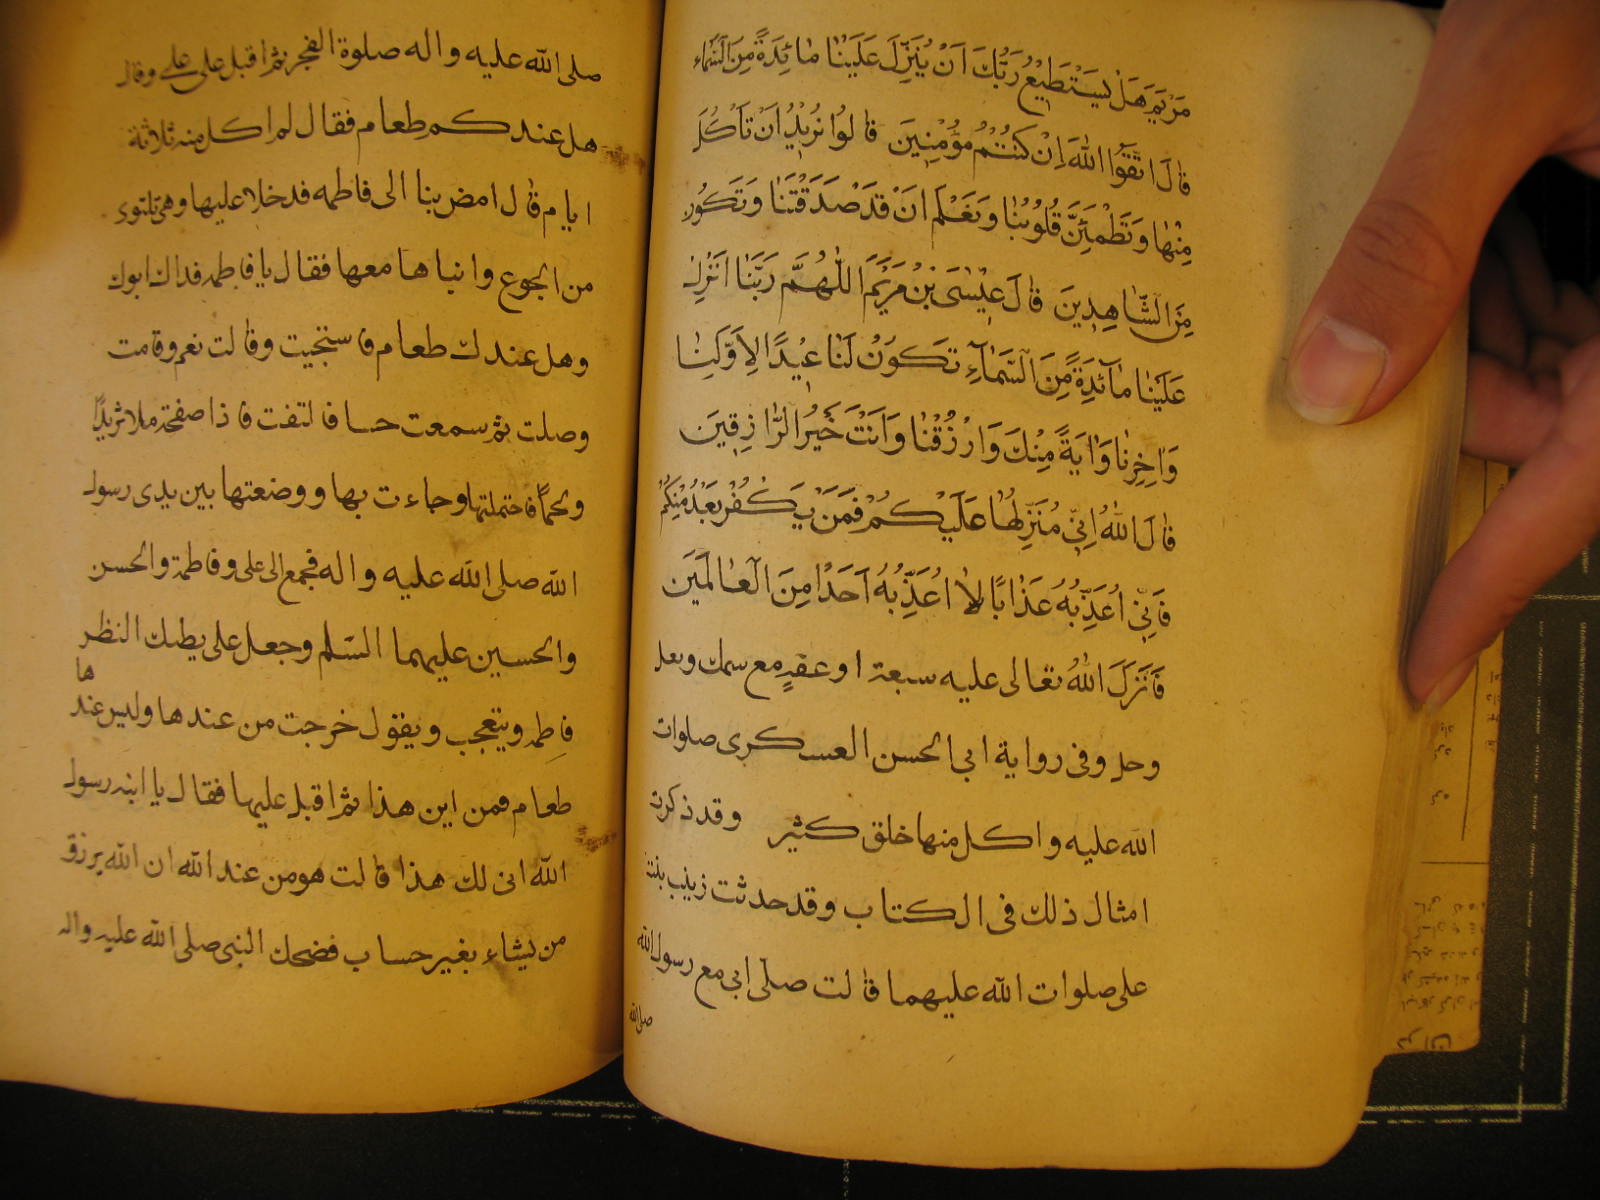 مَرْيَمَ هَلْ يَسْتَطِيعُ رَبُّكَ اَنْ يُنَزِّلَ عَلَيْنَا مَائِدَةً مِنَ السَّمَاءِ
قَالَ اتَّقُوا اللّٰهَ اِنْ كُنْتُمْ مُؤْمِنِينَ قَالُوا نُرِيدُ اَنْ نَأْكُلَ
مِنْهَا وَتَطْمَئِنَّ قُلُوبُنَا وَنَعْلَمَ اَنْ قَدْ صَدَقْتَنَا وَنَكُونَ
مِنَ الشَّاهِدِينَ قَالَ عِيسَى بْنُ مَرْيَمَ اللّٰهُمَّ رَبَّنَا اَنْزِلْ
عَلَيْنَا مَآئِدَةً مِنَ السَّمَآءِ تَكُونُ لَنَا عِيدًا لِاَوَّلِنَا
وَاٰخِرِنَا وَاٰيَةً مِنْكَ وَارْزُقْنَا وَاَنْتَ خَيْرُ الرَّازِقِينَ
قَالَ اللّٰهُ اِنِّي مُنَزِّلُهَا عَلَيْكُمْ فَمَنْ يَكْفُرْ بَعْدُ مِنْكُمْ
فَاِنِّي اُعَذِّبُهُ عَذَابًا لَا اُعَذِّبُهُ اَحَدًا مِنَ الْعَالَمِينَ
فَنَزَلَ اللّٰهُ تعالى عليه سبعة ارغفةٍ مع سمك وبعد
وحل وفى رواية ابى الحسن العسكرى صلوات
الله عليه واكل منها خلق كثير وقد ذكرت
امثال ذلك فى الكتاب وقد حدثت زينب بنت
على صلوات الله عليهما قالت صلّى ابى مع رسول الله
صلى الله
صلى الله عليه واله صلوة الفجر ثم اقبل على على وقال
هل عندكم طعام فقال لم اكل منه ثلاثة
ايام قال امض بنا الى فاطمه فدخلا عليها وهى تلتوى
من الجوع وابناها معها فقال يا فاطمه فداك ابوك
وهل عندك طعام فاستحيت وقالت نعم وقامت
وصلت ثم سمعت حسا فالتفت فاذا صفحة ملا ثريدًا
ولحمًا فاحتملتها وجاءت بها ووضعتها بين يدى رسول
الله صلى الله عليه واله فجمع الى على وفاطمة والحسن
والحسين عليهما السّلم وجعل على يطيل النظر
فاطمه ويتعجب ويقول خرجت من عندها وليس عندها
طعام فمن اين هذا ثم اقبل عليها فقال يا ابنه رسول
الله انى لك هذا قالت هو من عند الله ان الله يرزق
من يشاء بغير حساب فضحك النبى صلى الله عليه واله